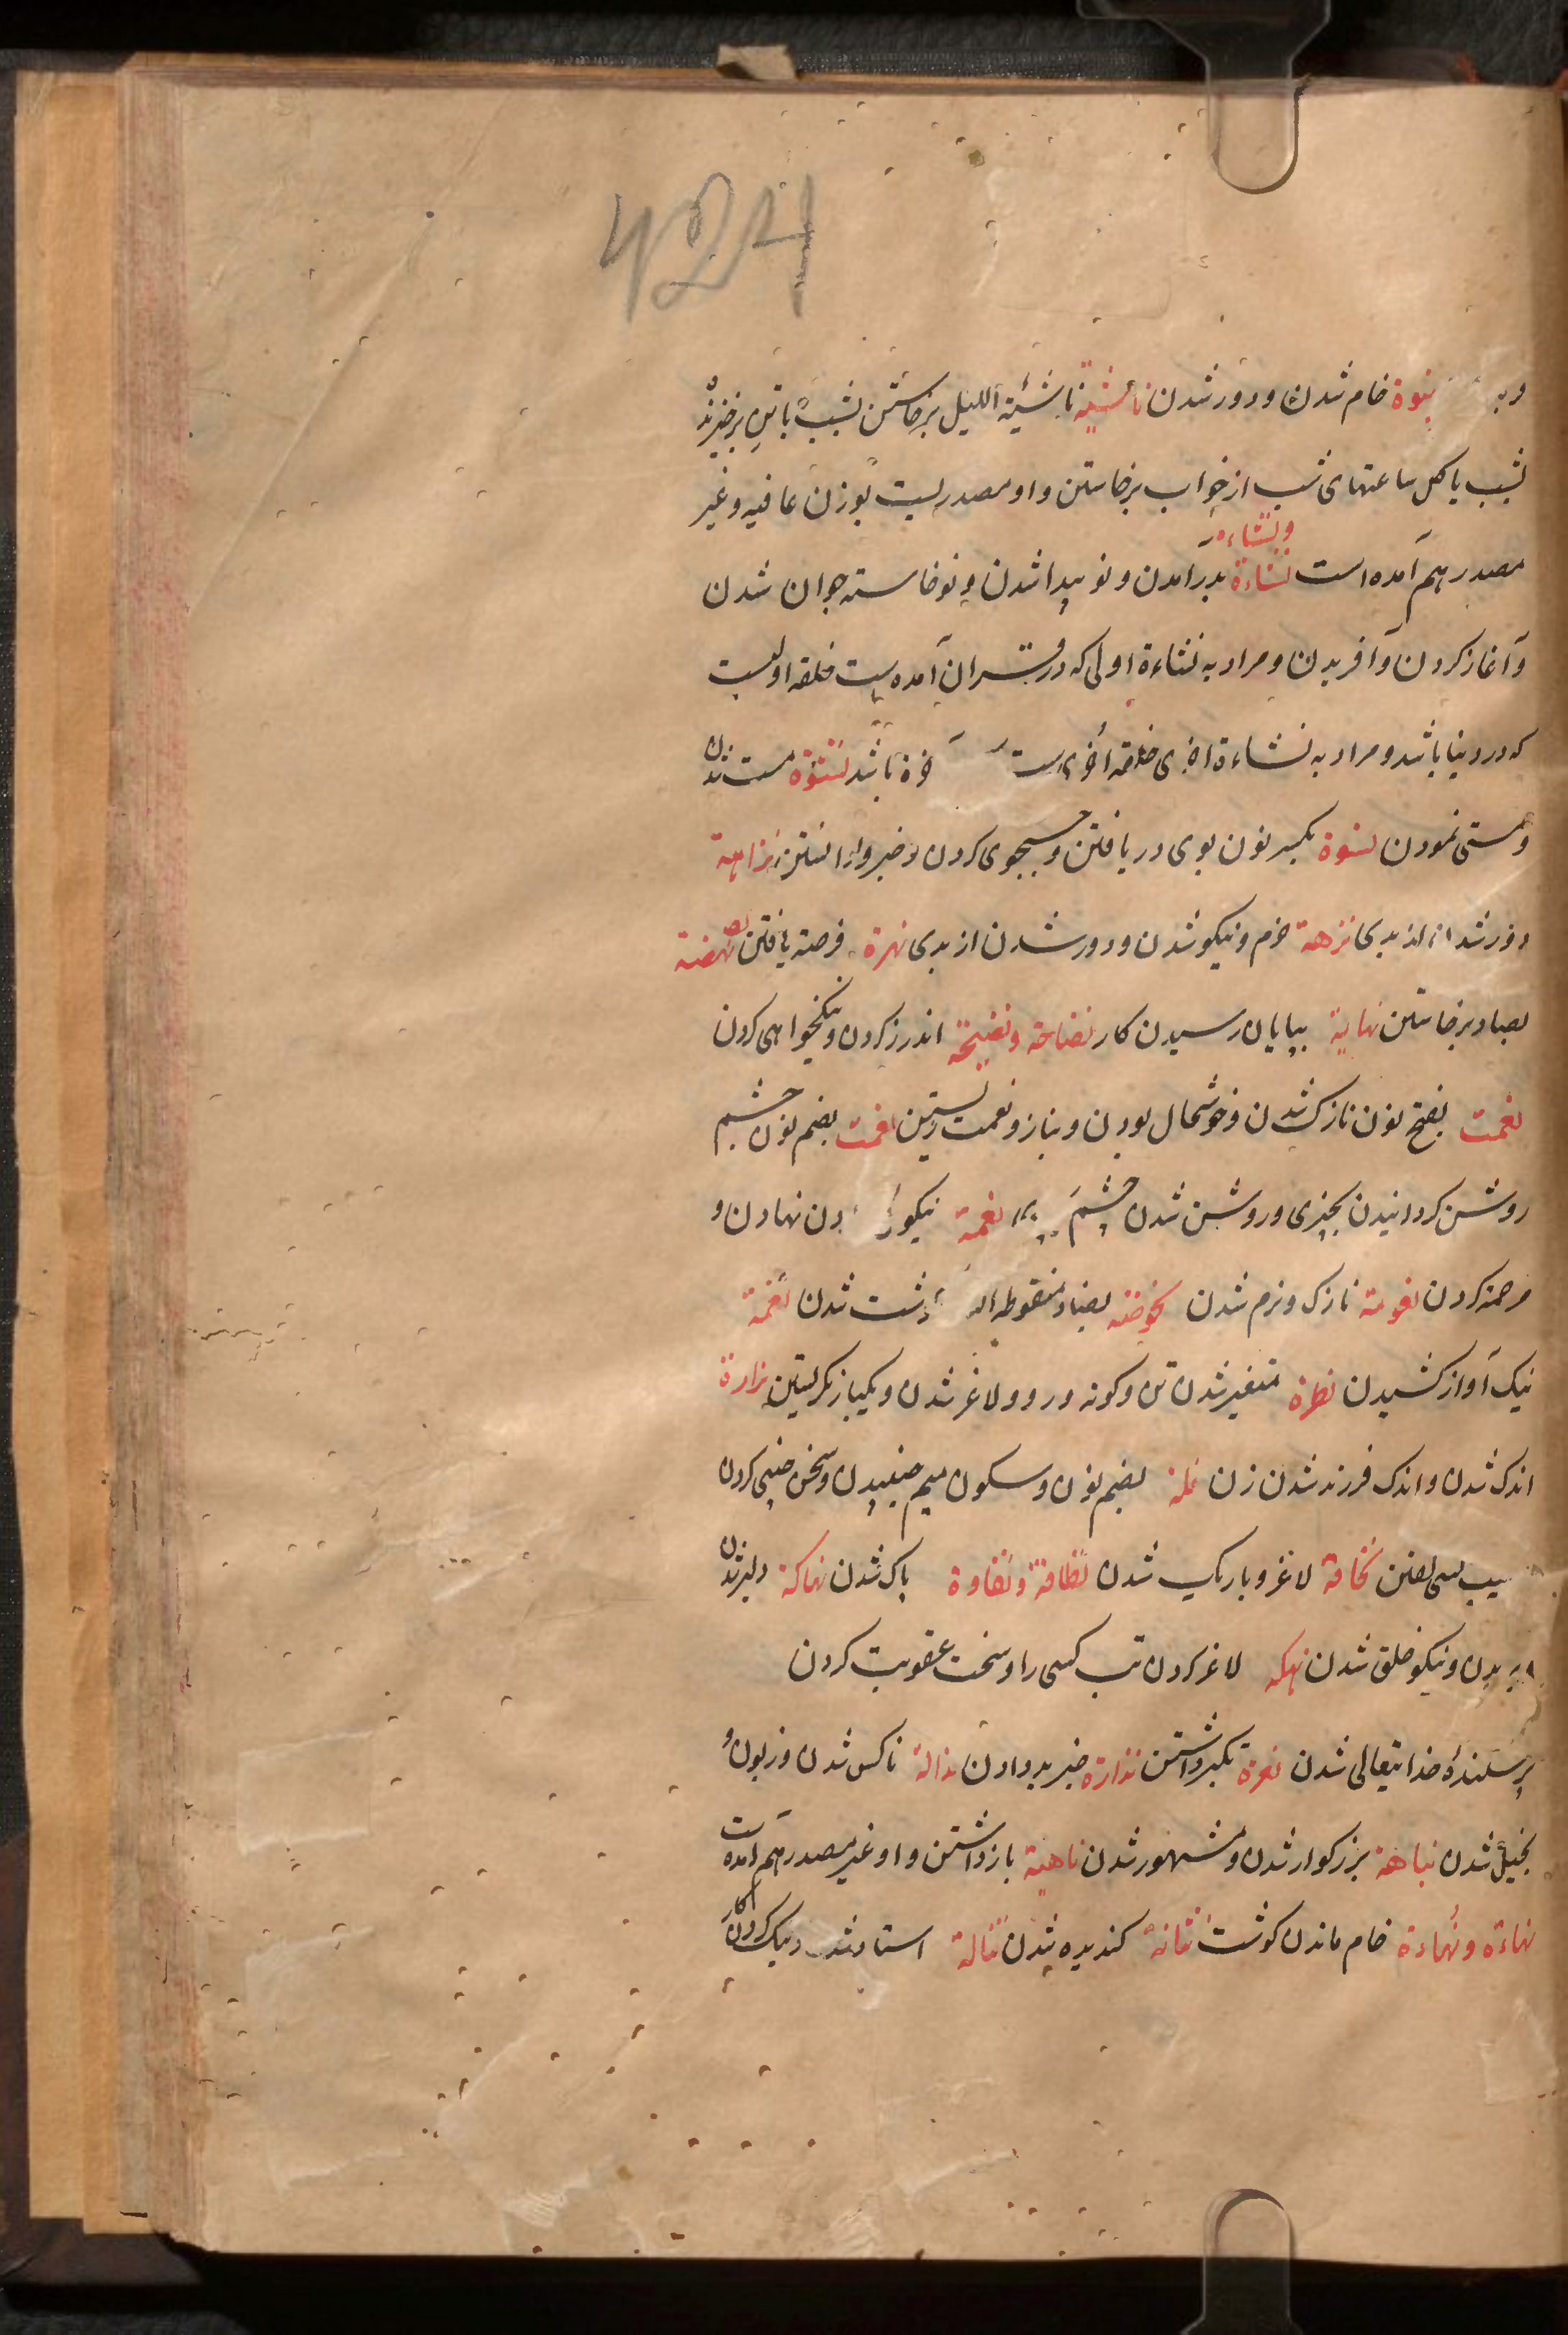 نبوة خام شدن و دور شدن ناشئة ناشئة اللیل برخاستن بشب یا تن برخیزنده
بشب یا کل ساعتهای شب از خواب برخاستن و او مصدریست بوزن عافیه و غیر
ونشاءة
مصدر هم آمده است نشاءة بدر آمدن و نو پیدا شدن و نوخاسته جوان شدن
و آغاز کردن و آفریدن و مراد به نشاءة اولی که در قران آمده است خلقه اولیست
که در دنیا باشد و مراد به نشاءة اخری خلقه اخری است باشد نشوة مست شدن
و مستی نمودن نشوة بکسر نون بوی در یافتن و جستجوی کردن و خبر وا دانستن نزاهة
دور شدن از بدی نزهة خرم و نیکو شدن و دور شدن از بدی نهزة فرصة یافتن نهضة
بضاد برخاستن نهایة بپایان رسیدن کار نصاحة و نصیحة اندرز کردن و نیکخواهی کردن
نعمت بفتح نون نازک شدن و خوشحال بودن و بناز و نعمت زیستن نعمت بضم نون چشم
روشن کردانیدن بچیزی و روشن شدن چشم نعمة نیکو نهادن و
مرحمة کردن نعومة نازک و نرم شدن نحوضة بضاد منقوطه شدن نغمة
نیک آواز کشیدن نظرة متغیر شدن تن و کونه و رو و لاغر شدن و یکبار نکریستن نزارة
اندک شدن و اندک فرزند شدن زن نملة بضم نون و سکون میم جنبیدن و سخن چینی کردن
نحافة لاغر و باریک شدن نظافة و نقاوة پاک شدن نهاکة دلیر شدن
و نیکو خلق شدن نهکه لاغر کردن تب کسی را و سخت عقوبت کردن
پرستندهٔ خدایتعالی شدن نعرة تکبر داشتن نذارة خبر بد دادن نذالة ناکس شدن و زبون و
بخیل شدن نباهة بزرکوار شدن و مشهور شدن ناهیة باز داشتن و او غیر مصدر هم آمده است
نهاءة و نهادة خام ماندن کوشت نتانة کندیده شدن نبالة استاد شدن و نیک کردن کار